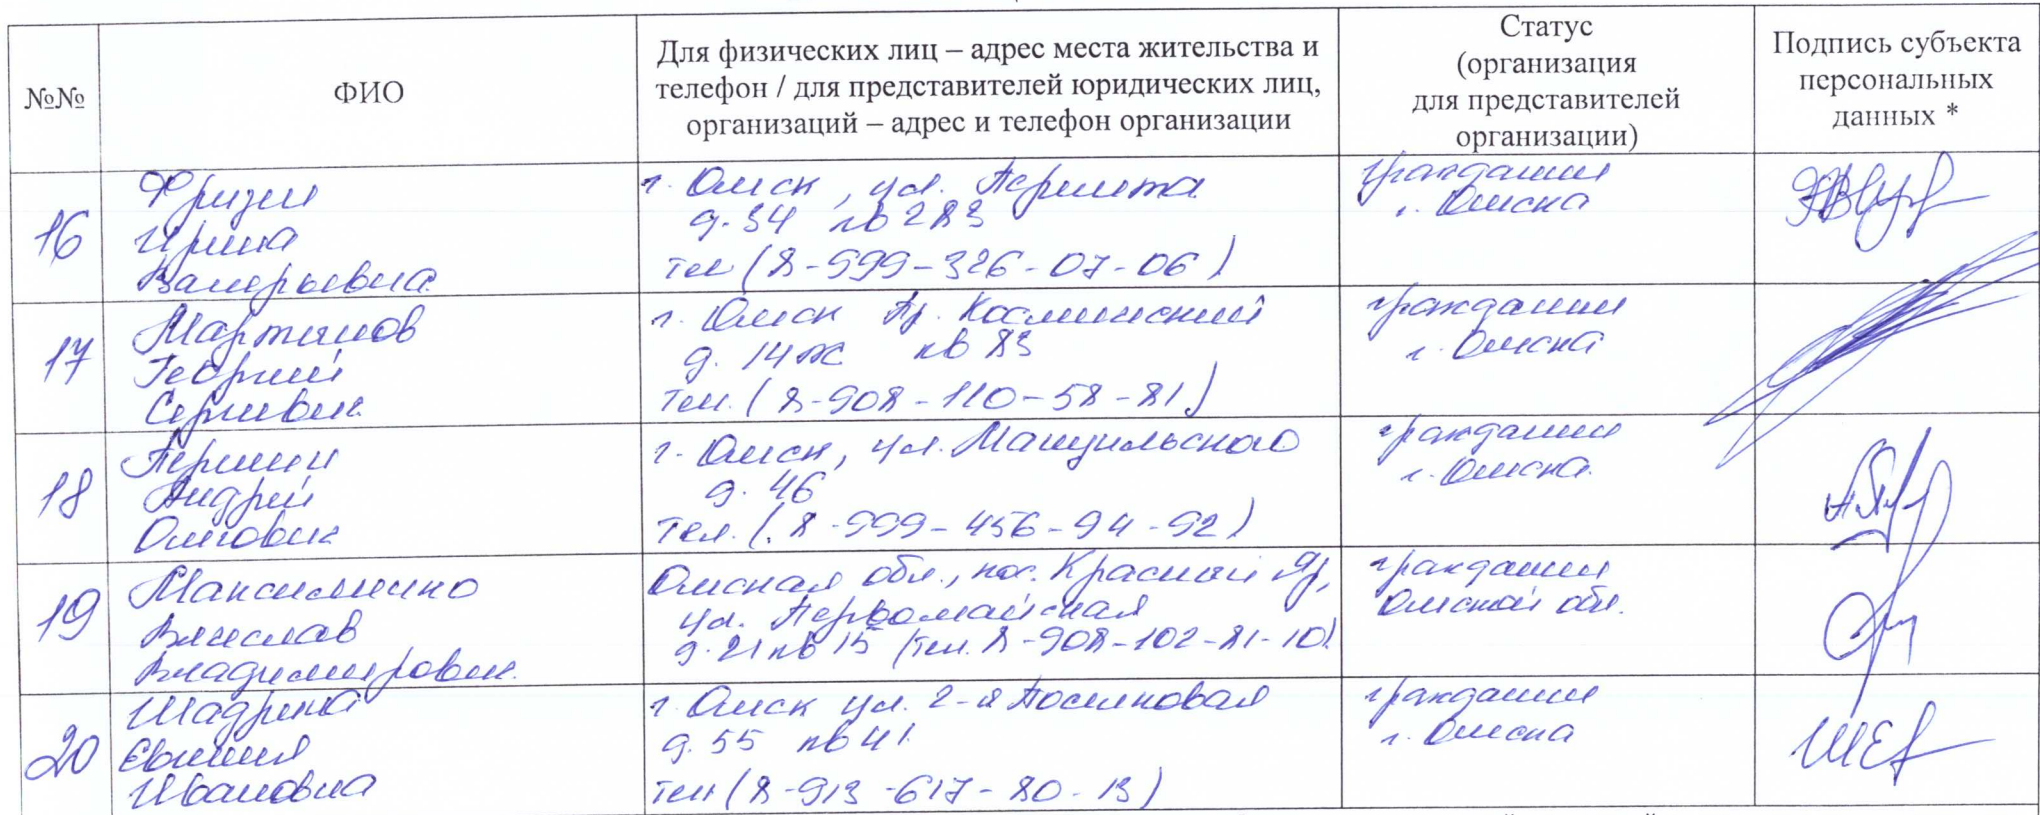 №№
ФИО
Для физических лиц – адрес места жительства и
телефон / для представителей юридических лиц,
организаций – адрес и телефон организации
Статус
(организация
для представителей
организации)
Подпись субъекта
персональных
данных *
16
Фризен
Ирина
Валерьевна
г. Омск, ул.
д. 34 кв 283
тел (8-999-326-07-06)
гражданин
г. Омска
17
Мартынов
Георгий
Сергеевич
г. Омск Пр. Космический
д. 14 ж кв 83
Тел. (8-908-110-58-81)
гражданин
г. Омска
18
Андрей
Олегович
г. Омск, ул.
д. 46
Тел. (8-999-456-94-92)
гражданин
г. Омска
19
Максименко
Вячеслав
Владимирович
Омская обл., пос. Красный Яр,
ул. Первомайская
д. 21 кв 15 (тел. 8-908-102-81-10)
гражданин
Омской обл.
20
Шадрина
Евгения
Ивановна
г. Омск ул. 2-я Поселковая
д. 55 кв 41
тел (8-913-617-80-13)
гражданин
г. Омска
ШЕ